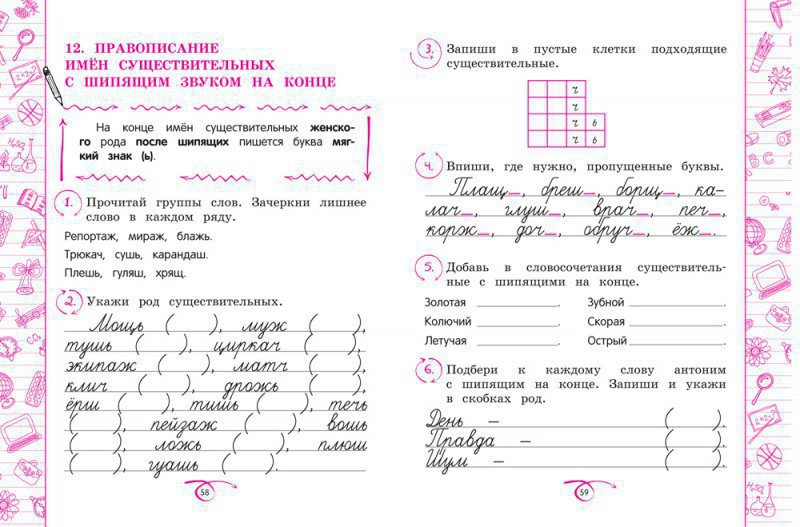 12. ПРАВОПИСАНИЕ
ИМЁН СУЩЕСТВИТЕЛЬНЫХ
С ШИПЯЩИМ ЗВУКОМ НА КОНЦЕ
На конце имён существительных женско-
го рода после шипящих пишется буква мяг-
кий знак (ь).
1. Прочитай группы слов. Зачеркни лишнее
слово в каждом ряду.
Репортаж, мираж, блажь.
Трюкач, сушь, карандаш.
Плешь, гуляш, хрящ.
2. Укажи род существительных.
Мощь ( ), муж ( ),
тушь ( ), циркач ( ),
экипаж ( ), матч ( ),
клич ( ), дрожь ( ),
ёрш ( ), тишь ( ), течь
( ), пейзаж ( ), вошь
( ), ложь ( ), плющ
( ), гуашь ( ).
58
3. Запиши в пустые клетки подходящие
существительные.
ч
ч
ч ь
ч ь
4. Впиши, где нужно, пропущенные буквы.
Плащ_, бреш_, борщ_, ка-
лач_, глуш_, врач_, печ_,
корж_, доч_, обруч_, ёж_.
5. Добавь в словосочетания существитель-
ные с шипящими на конце.
Золотая ____________ Зубной ____________
Колючий ____________ Скорая ____________
Летучая ____________ Острый ____________
6. Подбери к каждому слову антоним
с шипящим на конце. Запиши и укажи
в скобках род.
День – ( ).
Правда – ( ).
Шум – ( ).
59